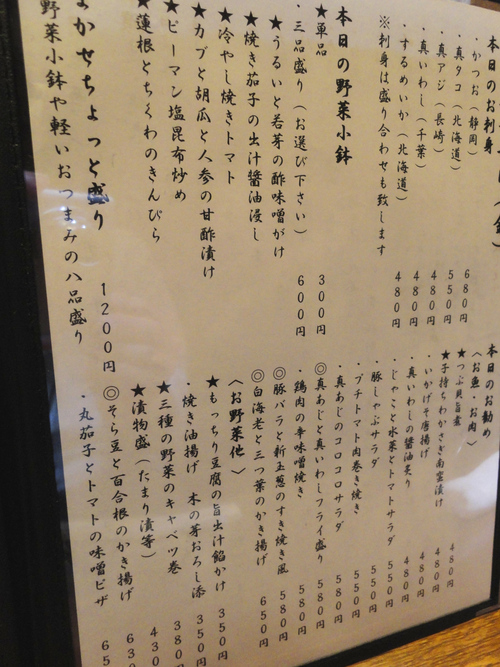 本日のお刺身
・かつお（静岡） 680円
・真タコ（北海道） 550円
・真アジ（長崎） 480円
・真いわし（千葉） 480円
・するめいか（北海道） 480円
※刺身は盛り合わせも致します
本日の野菜小鉢
★単品 300円
・三品盛り（お選び下さい） 600円
★うるいと若芽の酢味噌がけ
★焼き茄子の出汁醤油浸し
★冷やし焼きトマト
★カブと胡瓜と人参の甘酢漬け
★ピーマン塩昆布炒め
★蓮根とちくわのきんぴら
まかせちょっと盛り 1200円
野菜小鉢や軽いおつまみの八品盛り
本日のお勧め
〈お魚・お肉〉
★つぶ貝旨煮 480円
★子持ちわかさぎ南蛮漬け 480円
・いかげそ唐揚げ 480円
・真いわしの醤油炙り 480円
・じゃこと水菜とトマトサラダ 550円
・豚しゃぶサラダ 550円
・プチトマト肉巻き焼き 550円
・真あじのコロコロサラダ 580円
◎真あじと真いわしフライ盛り 580円
・鶏肉の辛味噌焼き 580円
◎豚バラと新玉葱のすき焼き風 580円
◎白海老と三つ葉のかき揚げ 650円
〈お野菜他〉
★もっちり豆腐の旨出汁餡かけ 350円
・焼き油揚げ 木の芽おろし添 350円
★三種の野菜のキャベツ巻 380円
★漬物盛（たまり漬等） 430
◎そら豆と百合根のかき揚げ 630
・丸茄子とトマトの味噌ピザ 65